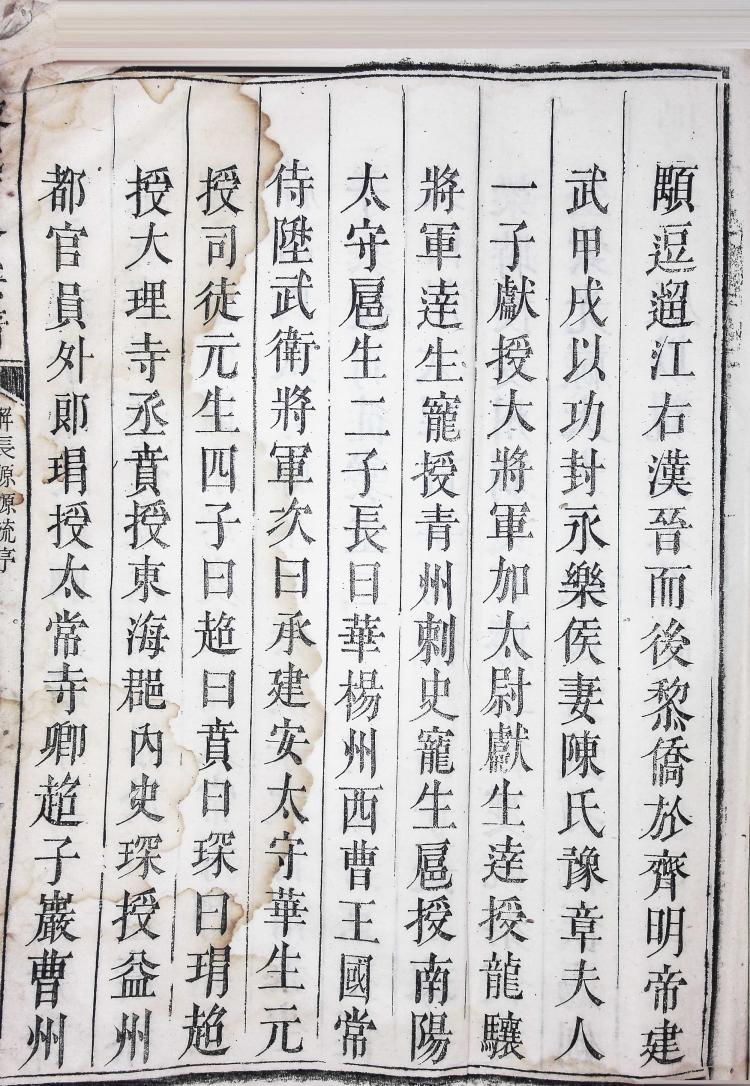 顒逗遛江右漢晉而後黎僑於齊明帝建
武甲戌以功封永樂侯妻陳氏豫章夫人
一子獻授大將軍加太尉獻生逹授龍驤
將軍逹生寵授青州刺史寵生扈授南陽
太守扈生二子長曰華楊州西曹王國常
侍陞武衛將軍次曰承建安太守華生元
授司徒元生四子曰趂曰賁曰琛曰琄趂
授大理寺丞賁授東海郡內史琛授益州
都官員外郎琄授太常寺卿趂子巖曹州
解長源源流序